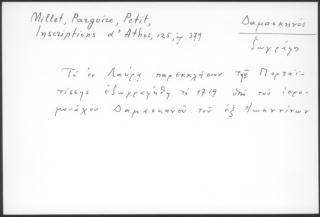 Millet, Pargoire, Petit,
Inscriptions d'Athos, 125, ἀρ. 379
Δαμασκηνός
ζωγράφος
Τὸ ἐν Λαύρᾳ παρεκκλήσιον τῆς Πορταϊ-
τίσσης ἐζωγραφήθη τὸ 1719 ὑπὸ τοῦ ἱερο-
μονάχου Δαμασκηνοῦ τοῦ ἐξ Ἰωαννίνων